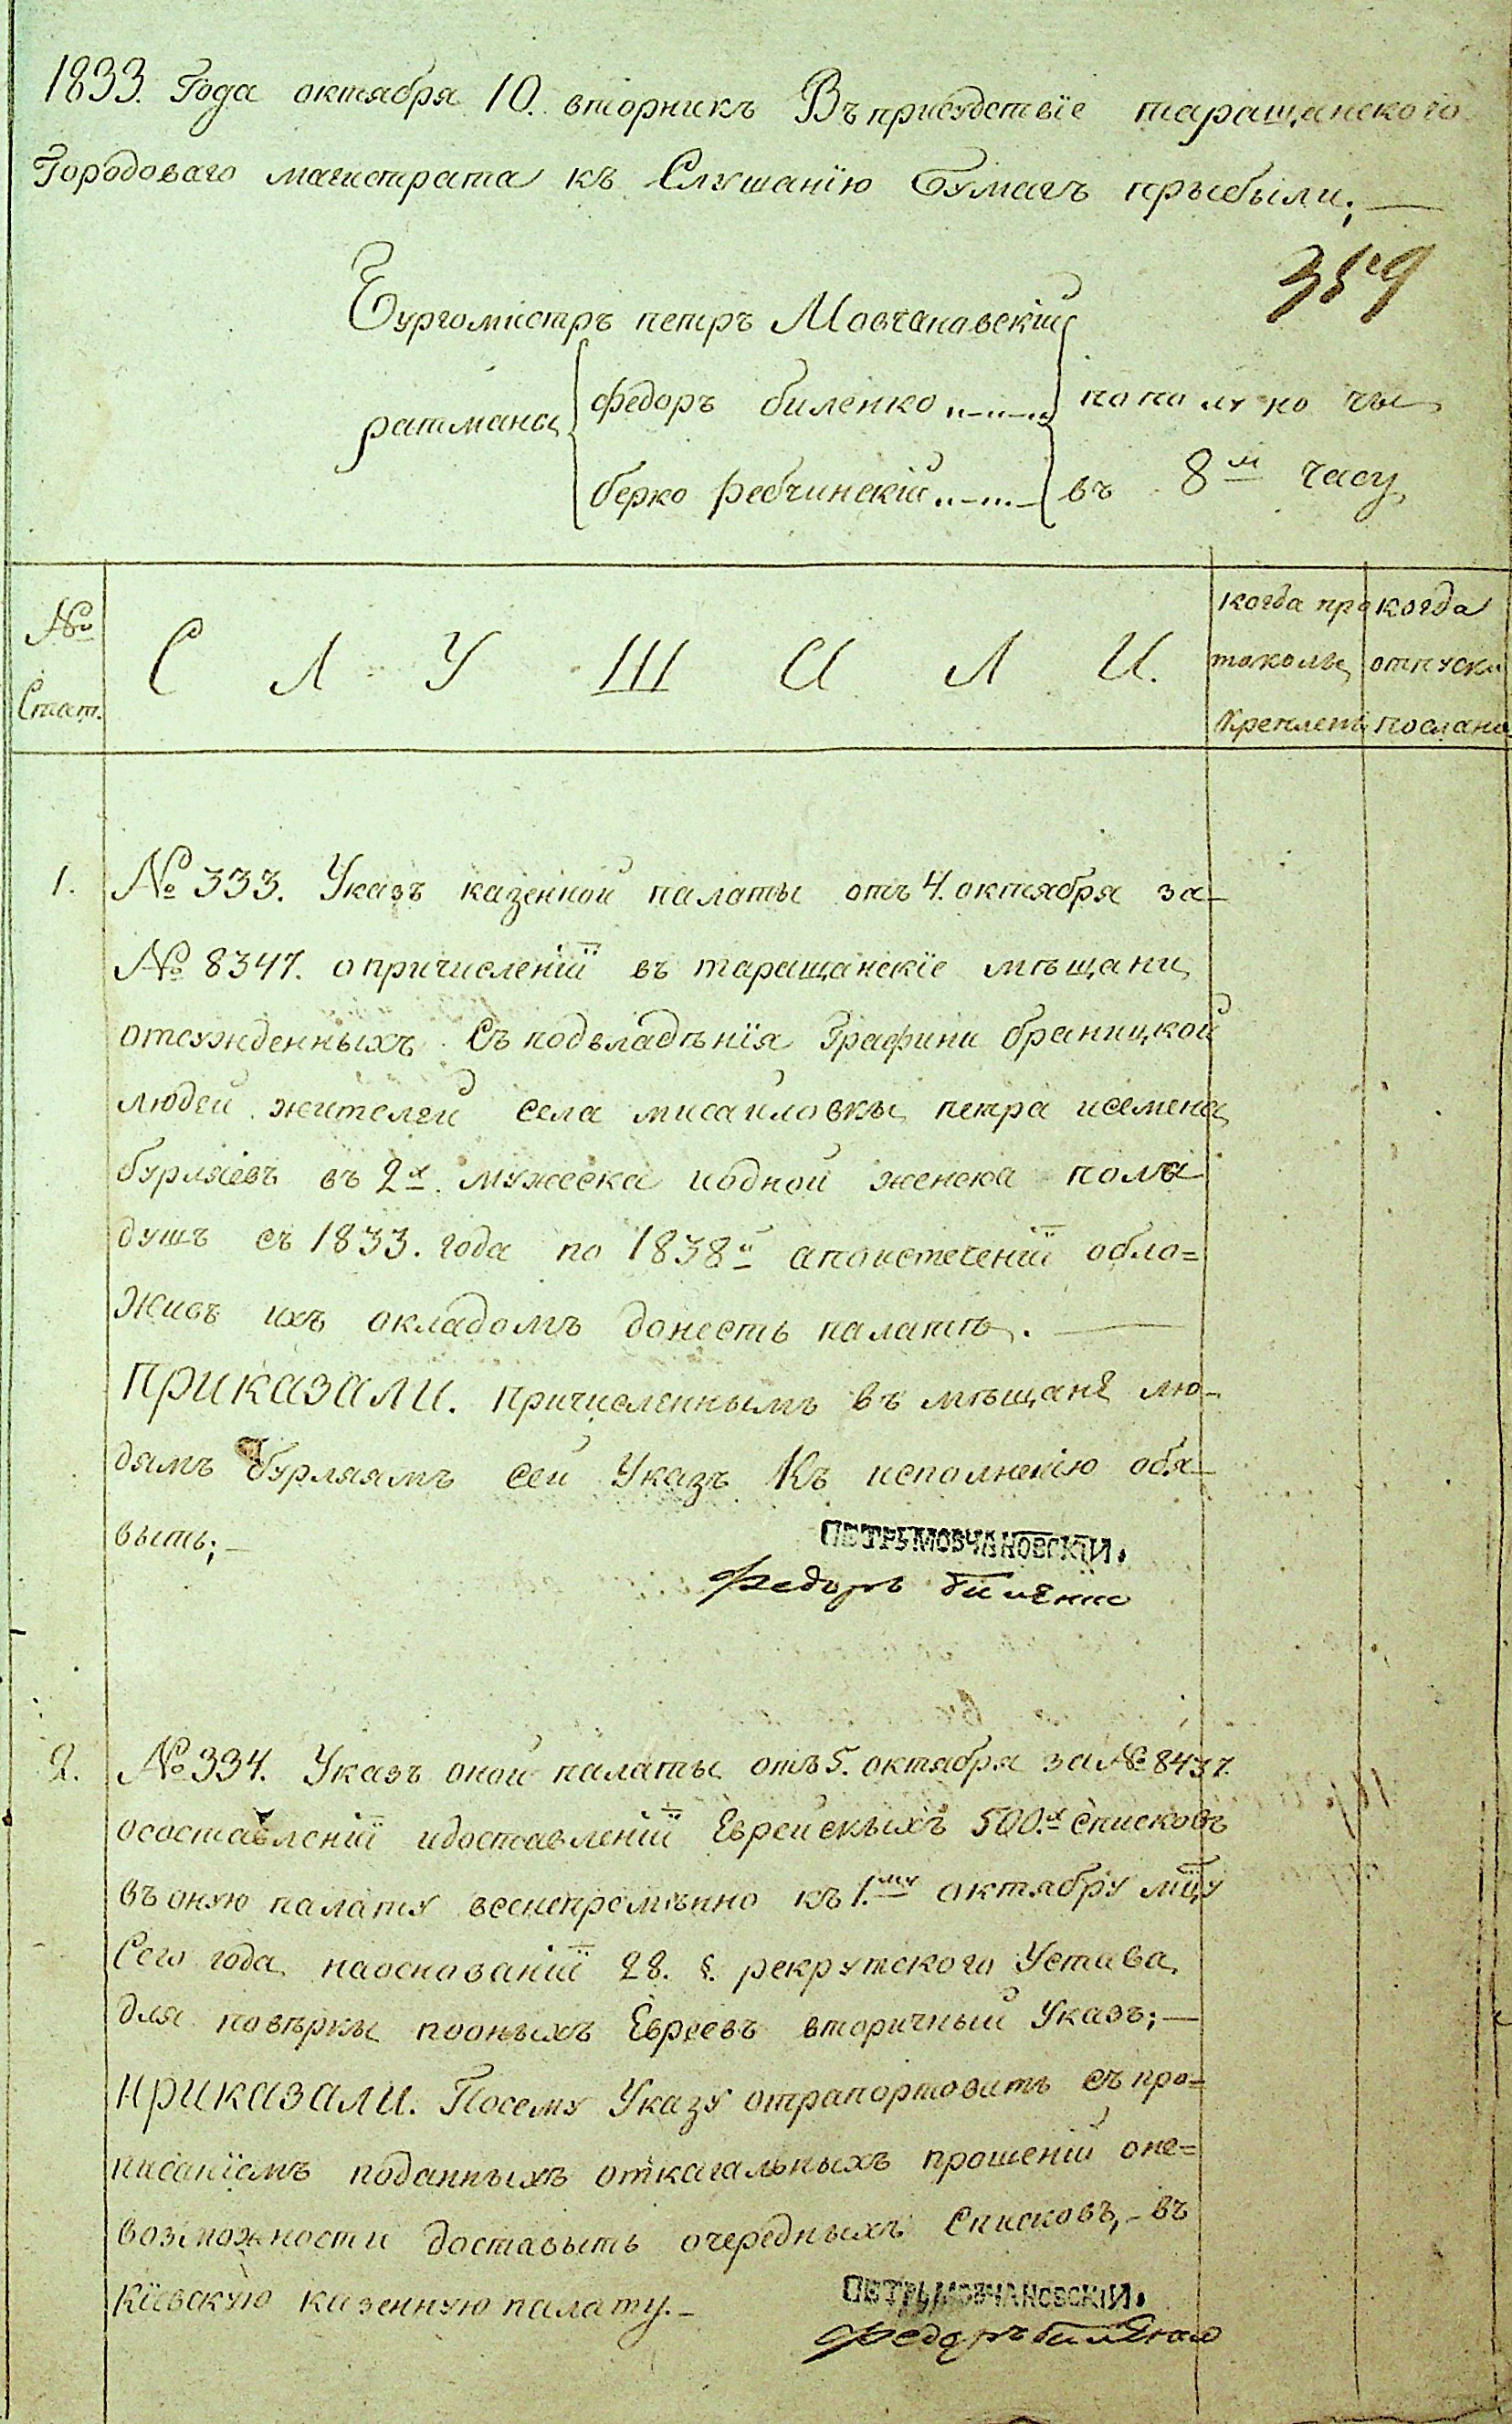 1833. Года октября 10. вторникъ Въ присудствіе таращанского
Городоваго магистрата къ Слушанїю Бумагъ прыбыли;
359
Бургомистръ петръ Мовчановскій
ратманы
федоръ биленко
по полу но чы
берко Ребчинскій
въ 8м часу
№ Стат.
С Л У Ш А Л И.
когда про
токолъ
Крепленъ
когда
отпуски
посланы
1. № 333. Указъ казенной палаты отъ 4. октября за
№ 8347. о причисленіи въ таращанскїе мѣщани
отсужденныхъ Съ подвладѣнїя Графини браницкой
людей жителей села мисаиловкы петра исемена
бурляевъ въ 2х мужеска иодной женска пола
душъ съ 1833. года по 1838й апоистеченіи обло=
живъ ихъ окладомъ донесть палатѣ.
приказали. причисленнымъ въ мѣщанѣ лю-
дямъ бурляямъ сей Указъ Къ исполненію обя-
выть;
ПЕТРЪ МОВЧАНОВСКІЙ.
Федоръ биленко
2. № 334. Указъ оной палаты отъ 5. октября за № 8437.
осоставленіи идоставленіи Еврейскыхъ 500.х списковъ
въ оную палату всенепремѣнно къ 1.му октябру мцу
Сего года наоснованіи 28. §. рекрутского Устава
для повѣркы пооныхъ Евреевъ вторичный Указъ;
приказали. Посему Указу отрапортовать съ про=
писанїемъ поданныхъ откагальныхъ прошеній оне=
возможности доставыть очередныхъ Списковъ, въ
Кїевскую казенную палату.
ПЕТРЪ МОВЧАНОВСКІЙ.
Федоръ биленко